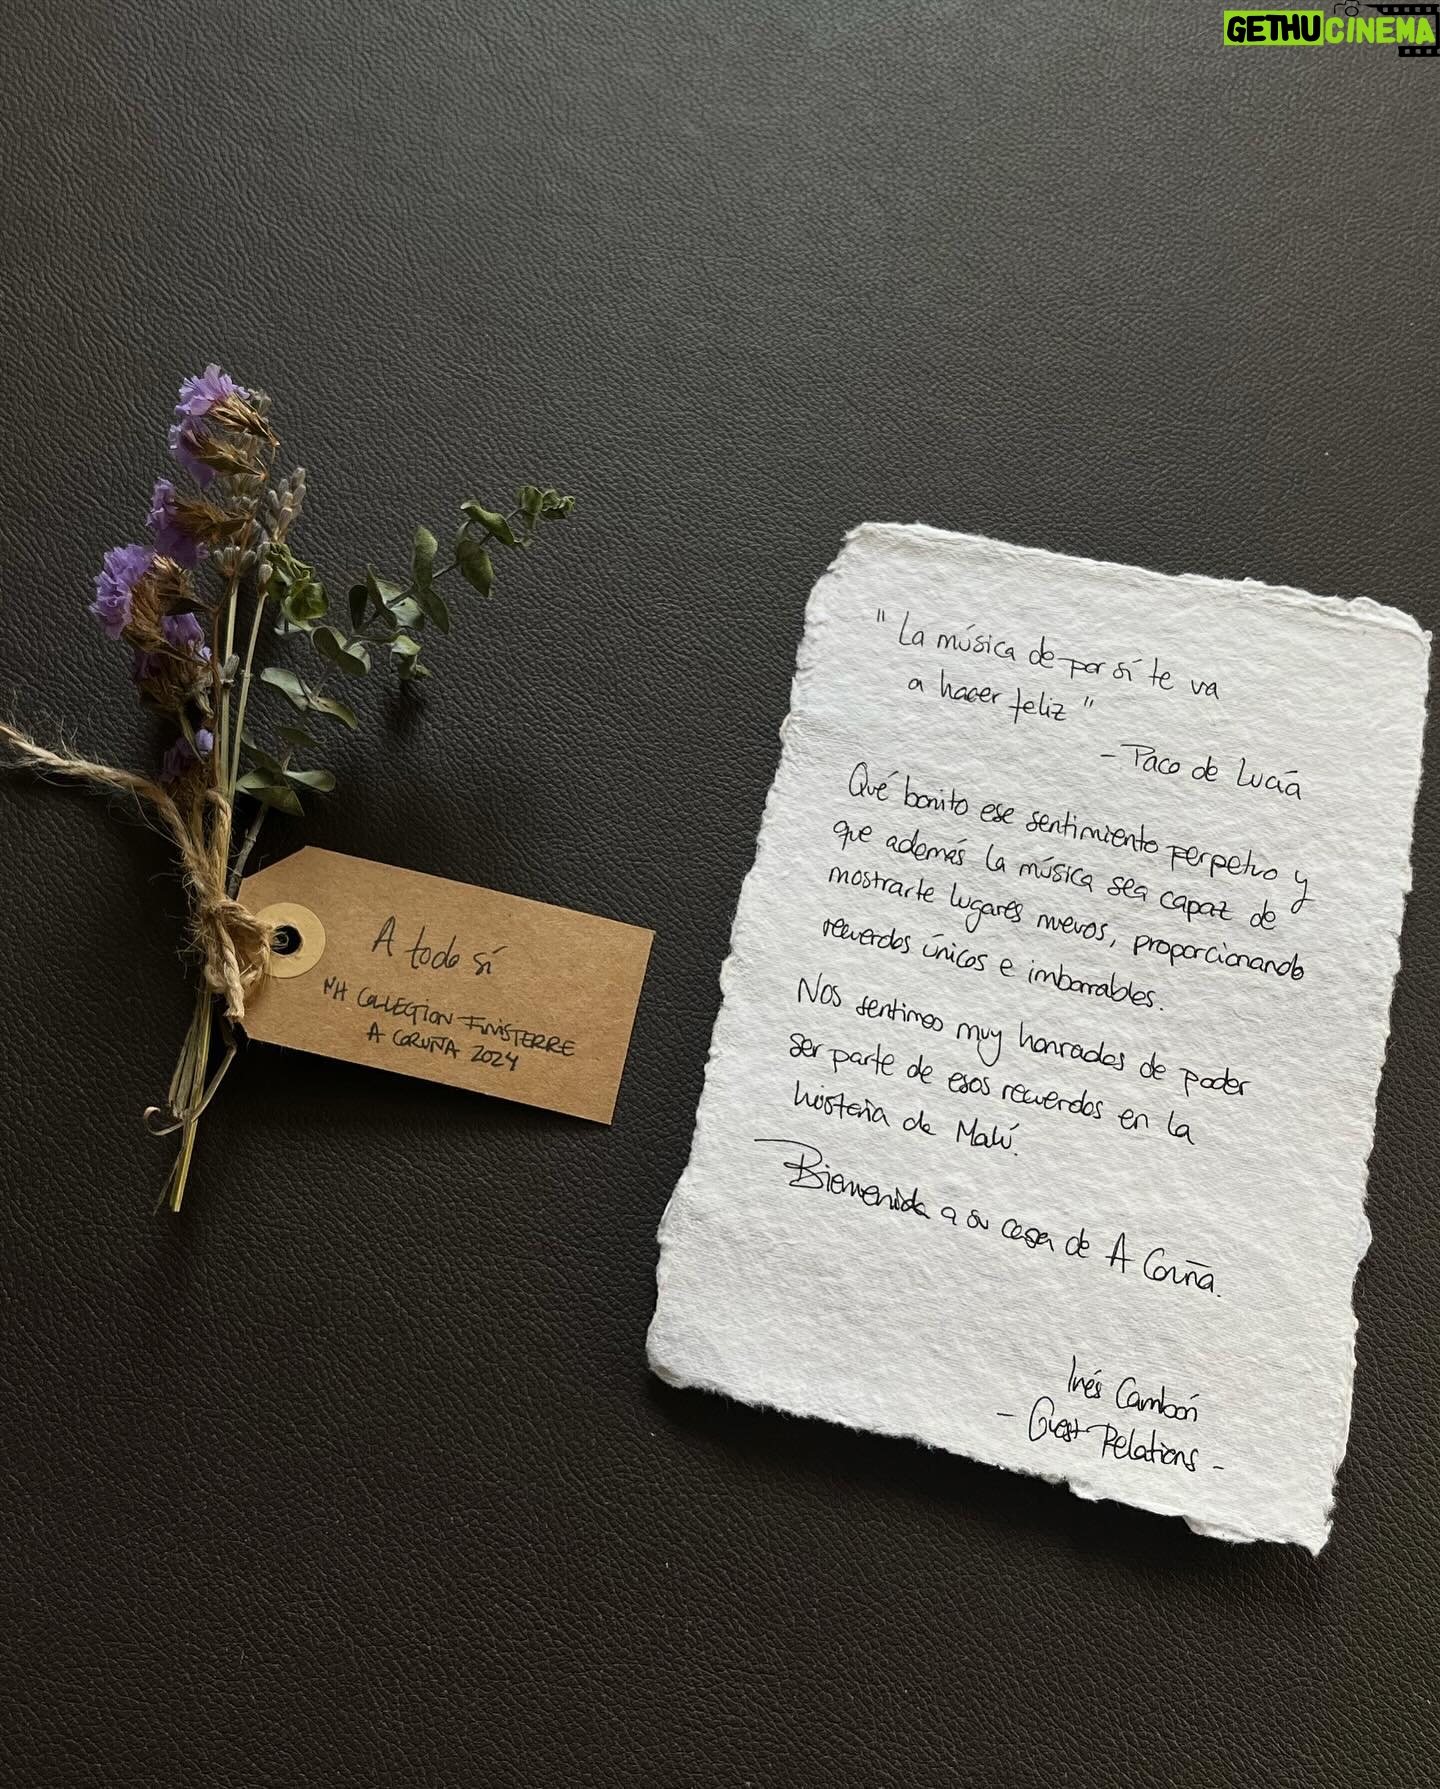 GETHUCINEMA
"La música de por sí te va
a hacer feliz"
- Paco de Lucía
Qué bonito ese sentimiento perpetuo y
que además la música sea capaz de
mostrarte lugares nuevos, proporcionando
recuerdos únicos e imborrables.
Nos sentimos muy honrados de poder
ser parte de esos recuerdos en la
historia de Malú.
Bienvenida a su casa de A Coruña.
Inés Cambón
- Guest Relations -
A todo sí
NH COLLECTION FINISTERRE
A CORUÑA 2024